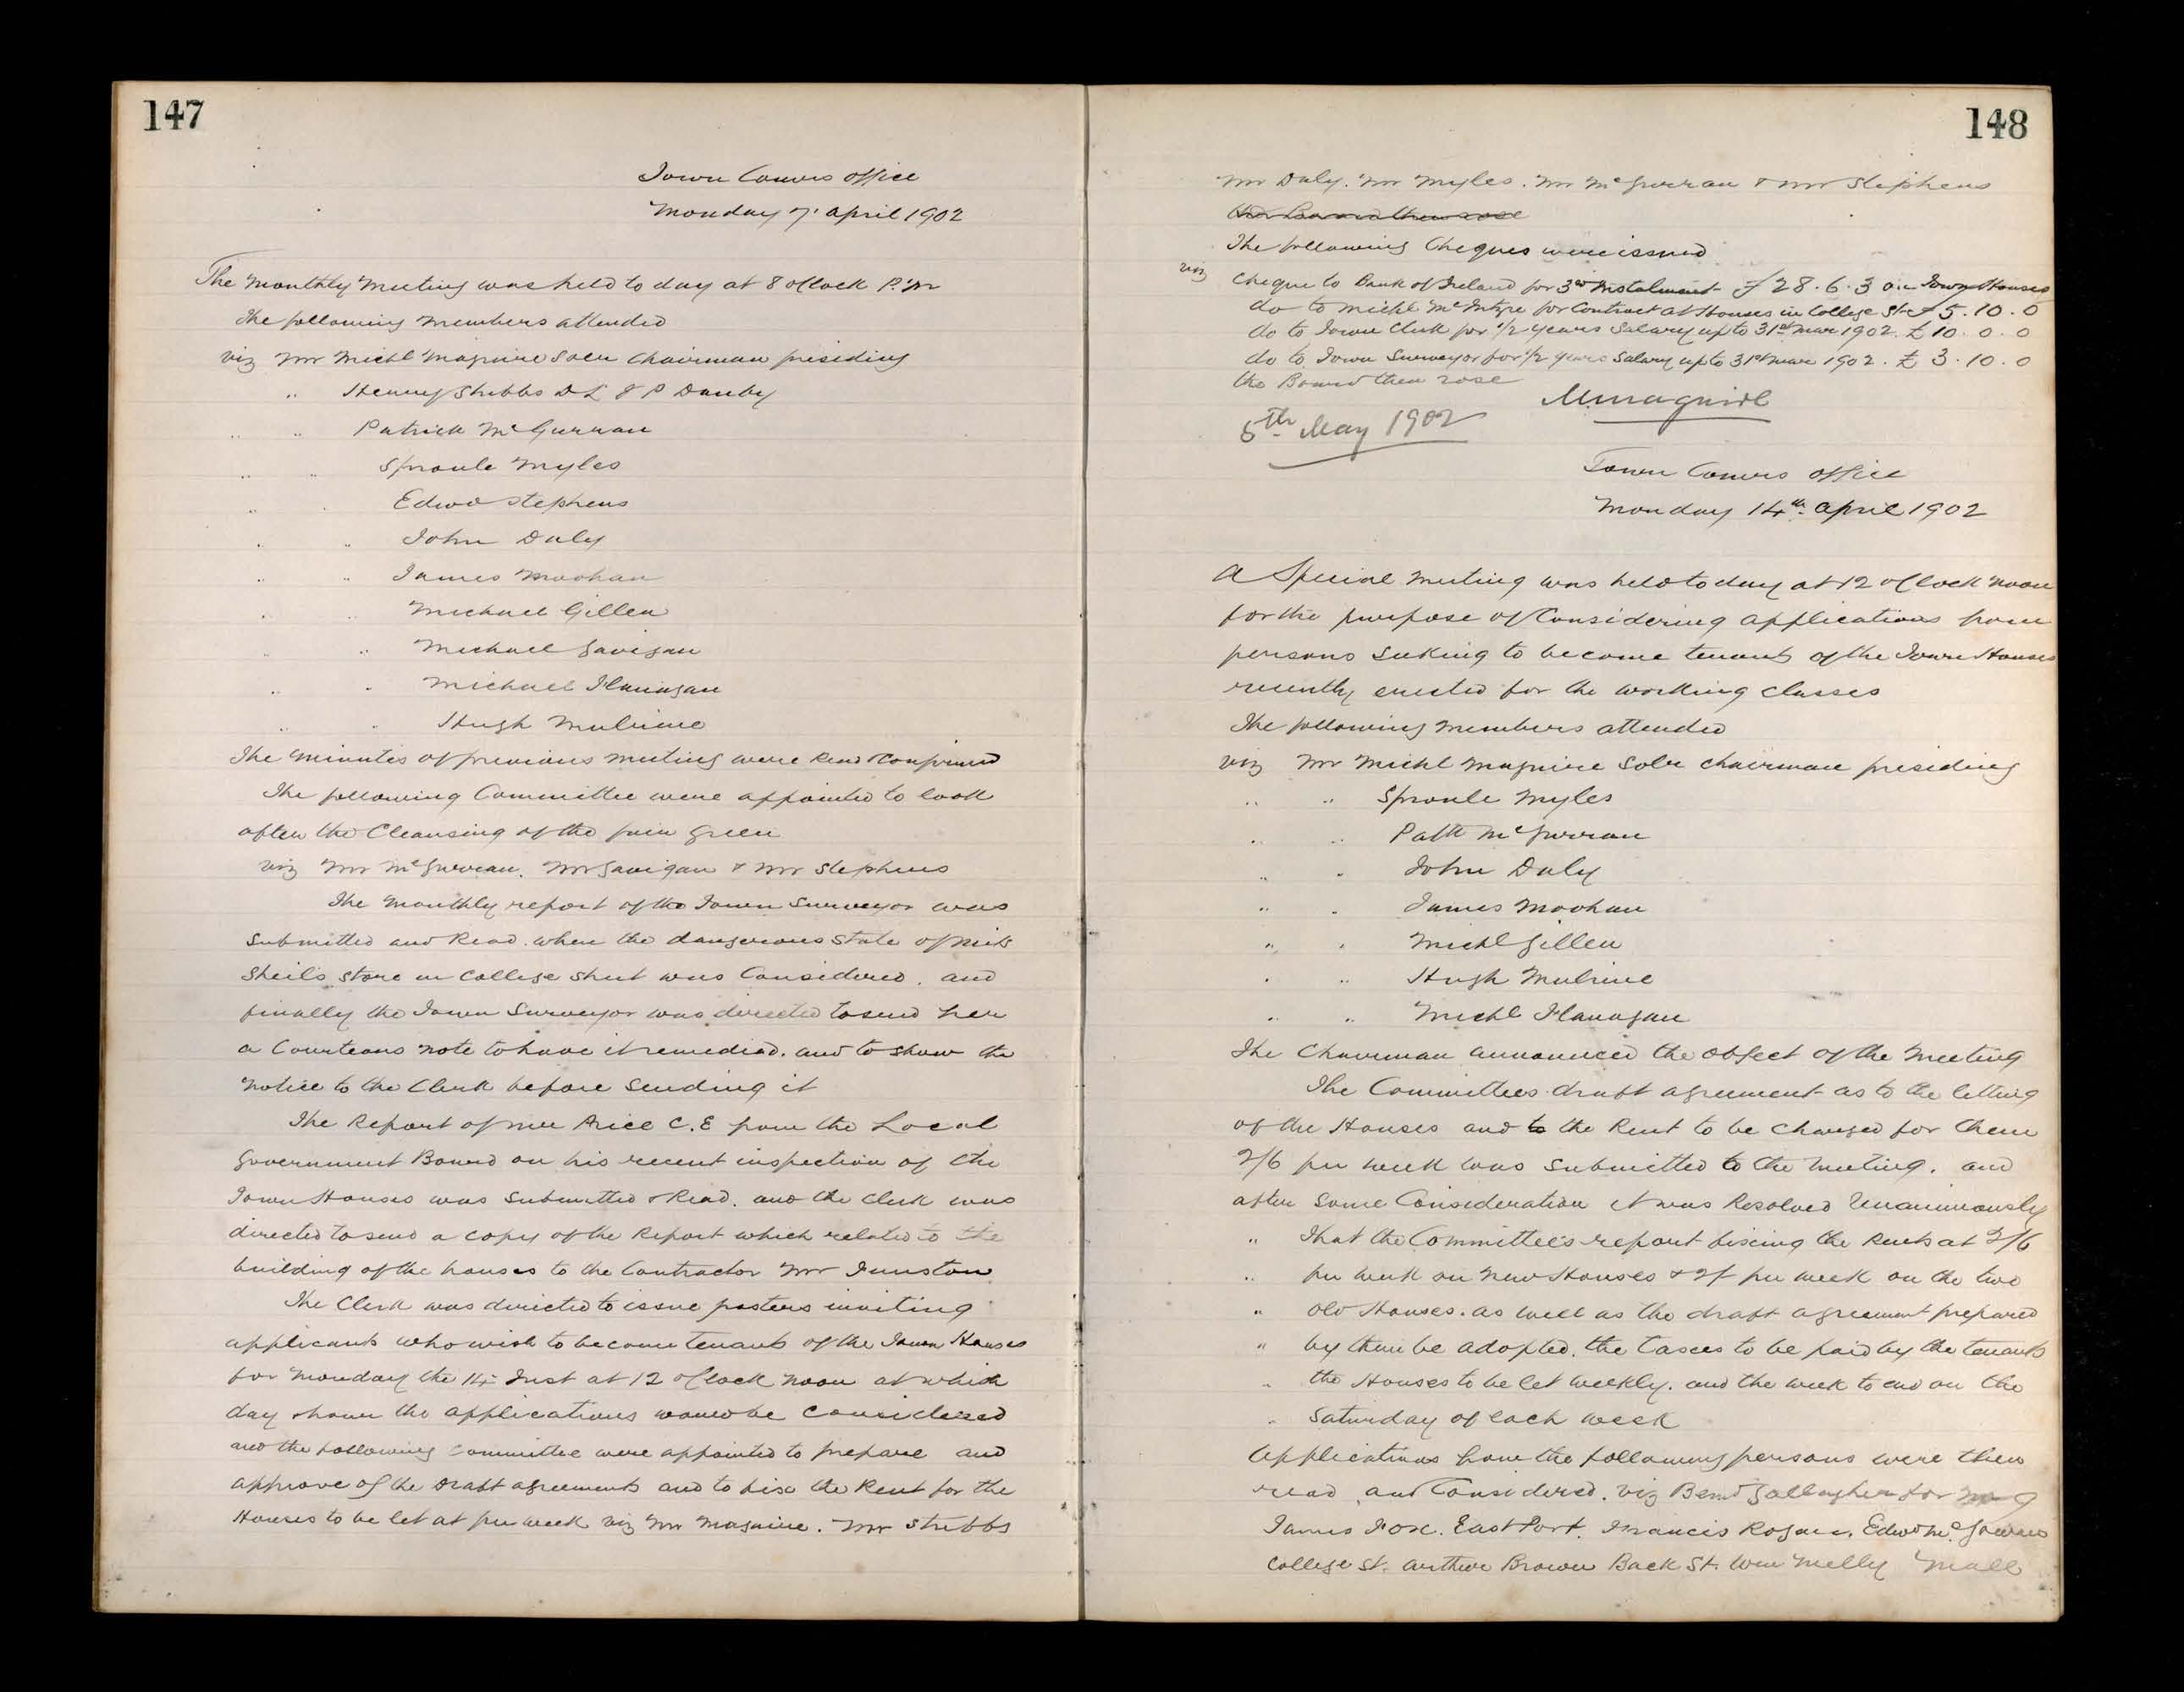 147
Town Comrs office
Monday 7. April 1902
The Monthly Meeting was held to day at 8 o'Clock P.M
The following Members attended
viz Mr Michl Maguire Solr Chairman presiding
" Henry Stubbs D L J P Danby
" " Patrick McGurran
" " Sproule Myles
" " Edwd Stephens
" " John Daly
" " James Moohan
" " Michael Gillen
" " Michael Gavigan
" " Michael Flanagan
" " Hugh Mulrine
The Minutes of previous meeting were Read & Confirmed
The following Committee were appointed to look
after the Cleansing of the fair green
viz Mr McGurran. Mr Gavigan & Mr Stephens
The Monthly report of the Town Surveyor was
Submitted and Read. when the dangerous State of
Sheil's Store in College Street was Considered. and
finally the Town Surveyor was directed to send her
a Courteous note to have it remedied. and to show the
notice to the Clerk before Sending it
The Report of Mr Price C.E from the Local
Government Board on his recent inspection of the
Town Houses was Submitted & Read. and the Clerk was
directed to send a copy of the Report which related to the
building of the houses to the Contractor Mr
The Clerk was directed to issue posters inviting
applicants who wish to become tenants of the Town Houses
for Monday the 14. Inst at 12 o'Clock noon at which
day & hour the applications would be Considered
and the following Committee were appointed to prepare and
approve of the draft agreements and to fix the Rent for the
Houses to be let at per week viz Mr Maguire. Mr Stubbs
148
Mr Daly. Mr Myles. Mr McGurran & Mr Stephens
the Board then rose
The following Cheques were issued
viz Cheque to Bank of Ireland for 3rd Instalment £28.6.3 on Town Houses
do to Michl McIntyre for Contract at Houses in College St £5.10.0
do to Town Clerk for 1/2 years Salary up to 31st Mar 1902. £10.0.0
do to Town Surveyor for 1/2 years Salary up to 31st Mar 1902. £3.10.0
the Board then rose
M Maguire
5th May 1902
Town Comrs office
Monday 14th April 1902
A Special meeting was held to day at 12 o'Clock noon
for the purpose of Considering applications from
persons seeking to become tenants of the Town Houses
recently erected for the working classes
The following Members attended
viz Mr Michl Maguire Solr chairman presiding
" " Sproule Myles
" " Patk McGurran
" " John Daly
" " James Moohan
" " Michl Gillen
" " Hugh Mulrine
" " Michl Flanagan
The Chairman announced the object of the meeting
The Committees draft agreement as to the letting
of the Houses and to the Rent to be charged for them
2/6 per week was Submitted to the meeting. and
after some Consideration it was Resolved Unanimously
" That the Committee's report fixing the Rents at 2/6
" per week on New Houses & 2/ per week on the two
" old Houses. as well as the draft agreement prepared
" by them be adopted. the taxes to be paid by the tenants
" the Houses to be let weekly. and the week to end on the
" Saturday of each week
Applications from the following persons were then
read and Considered. viz Bernd Gallagher for No 9
James Fox. East Port. Francis Rogan. Edwd McGowan
College St. Arthur Brown Back St. Wm Melly Mall